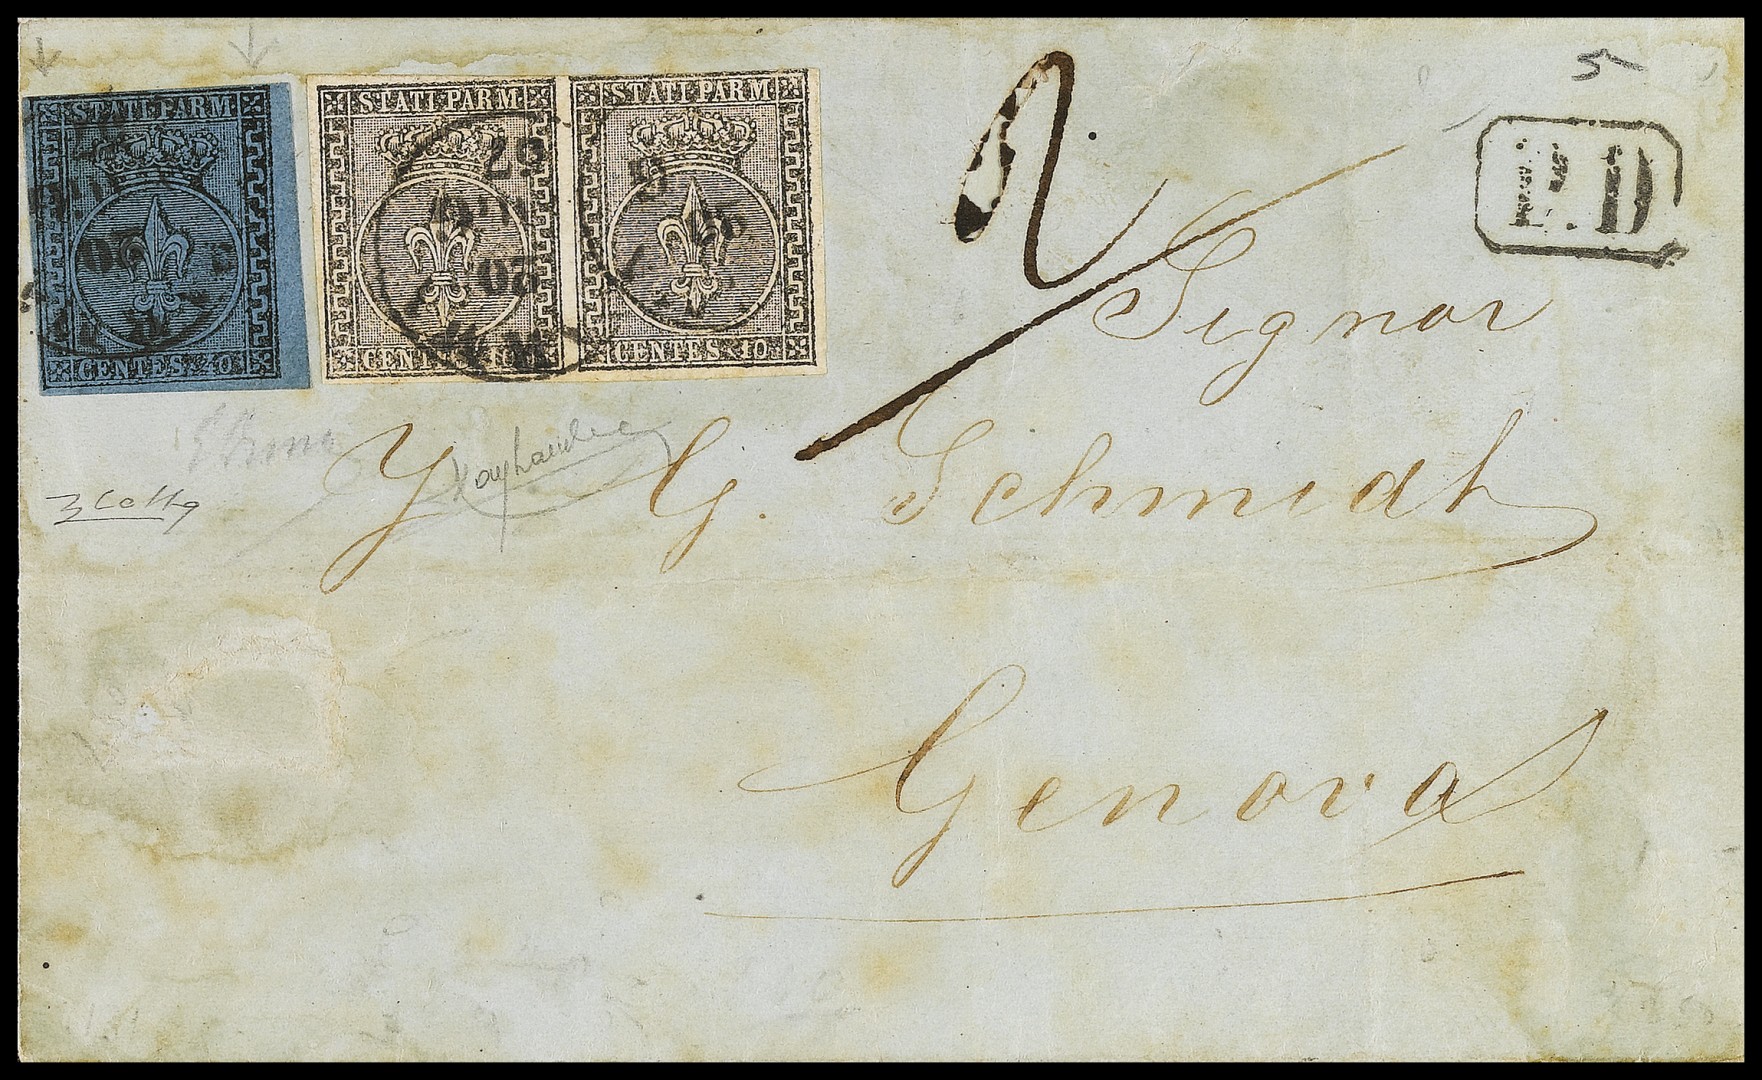 5
P.D
STATI PARM
CENTES. 40
STATI PARM
CENTES. 10
STATI PARM
CENTES. 10
2
Signor
J G. Schmidt
Genova